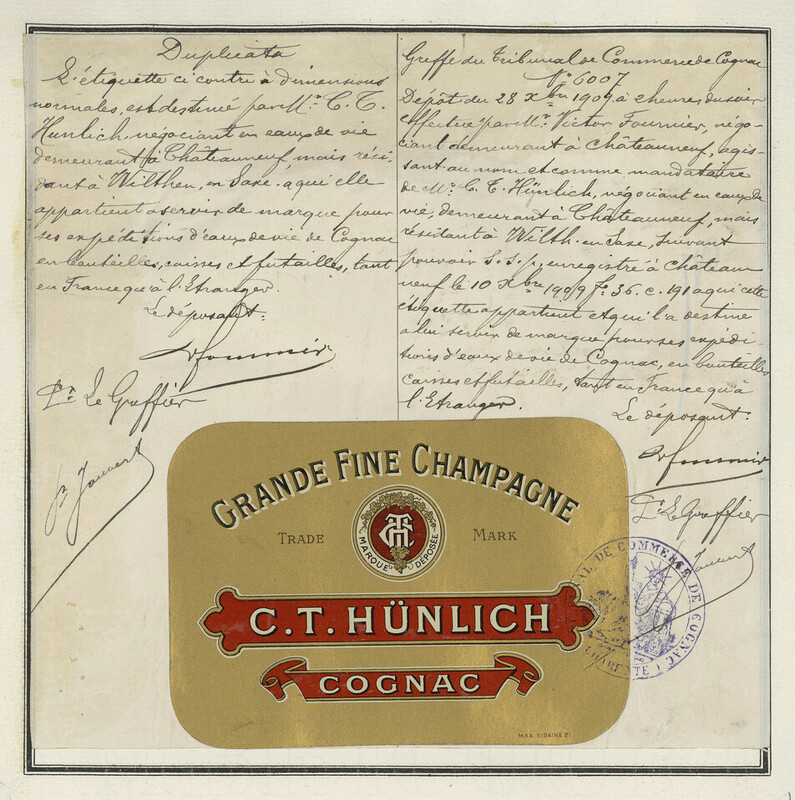 Duplicata
L'étiquette ci contre à dimensions
normales, est destiné par Mr. C. T.
Hünlich, négociant en eaux de vie
demeurant à Châteauneuf, mais rési-
dant à Wilthen, en Saxe. a qui elle
appartient a servir de marque pour
ses expéditions d'eaux de vie de Cognac
en bouteilles, caisses et futailles, tant
en France qu'à l'Etranger.
Le déposant:
VFournier
Pr. Le Greffier
Greffe du Tribunal de Commerce de Cognac
No. 6007
Dépôt du 28 Xbre 1909 à 2 heures du soir
effectué par Mr. Victor Fournier, négo-
ciant demeurant à Châteauneuf, agis-
sant au nom et comme mandataire
de Mr. C. T. Hünlich, négociant en eaux de
vie, demeurant à Châteauneuf, mais
résidant à Wilth. en Saxe, suivant
pouvoir S.S.p, enregistré à Château
neuf le 10 Xbre 1909 fo. 36. c. 191 a qui cette
étiquette appartient et qui l'a destine
a lui servir de marque pour ses expédi-
tions d'eaux de vie de Cognac, en bouteilles
caisses et futailles, tant en France qu'à
l'Etranger.
Le déposant:
VFournier
Pr. Le Greffier
GRANDE FINE CHAMPAGNE
TRADE MARK
MARQUE DÉPOSÉE
C.T. HÜNLICH
COGNAC
MAX. SIDAINE Br.
DE COMMERCE DE COGNAC
CHARENTE